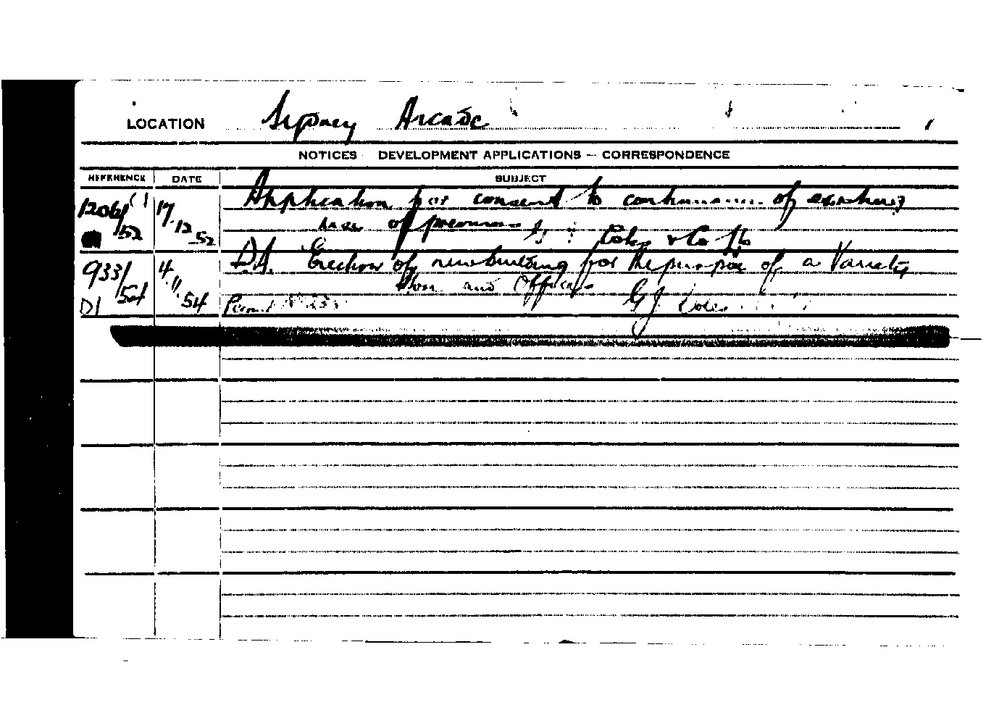 LOCATION Sydney Arcade
NOTICES DEVELOPMENT APPLICATIONS – CORRESPONDENCE
REFERENCE DATE SUBJECT
1206/52 17.12.52 Application for consent to of existing
of Coles & Co
933/54 4.11.54 D.A. Erection of new building for the purpose of a Variety
D1 and Offices G J Coles